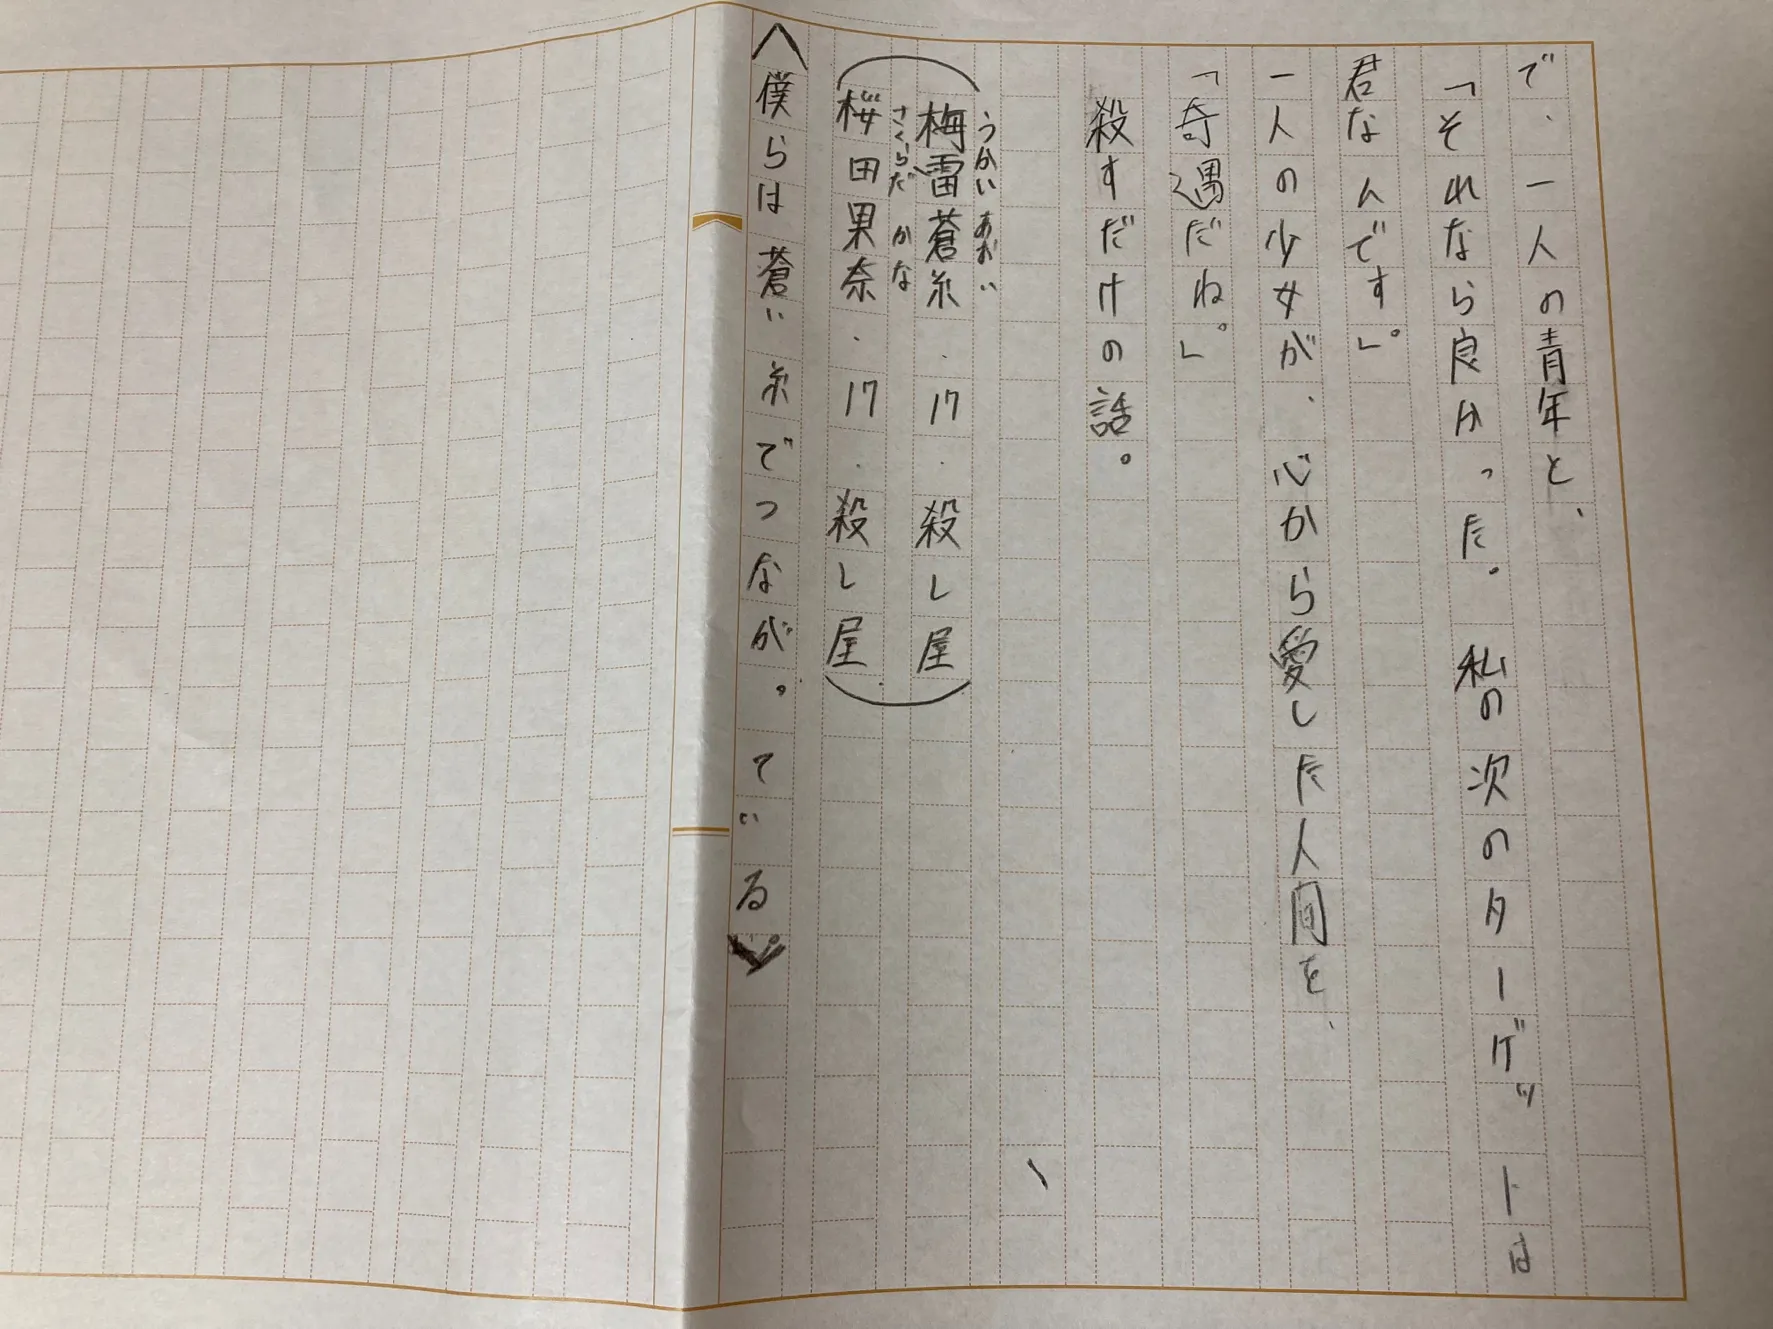 で、一人の青年と、
「それなら良かった。私の次のターゲットは
君なんです」。
一人の少女が、心から愛した人間を、
「奇遇だね。」
殺すだけの話。
うかい あおい
梅雷蒼糸・17・殺し屋
さくらだ かな
桜田果奈・17・殺し屋
〈僕らは蒼い糸でつなが。ている〉